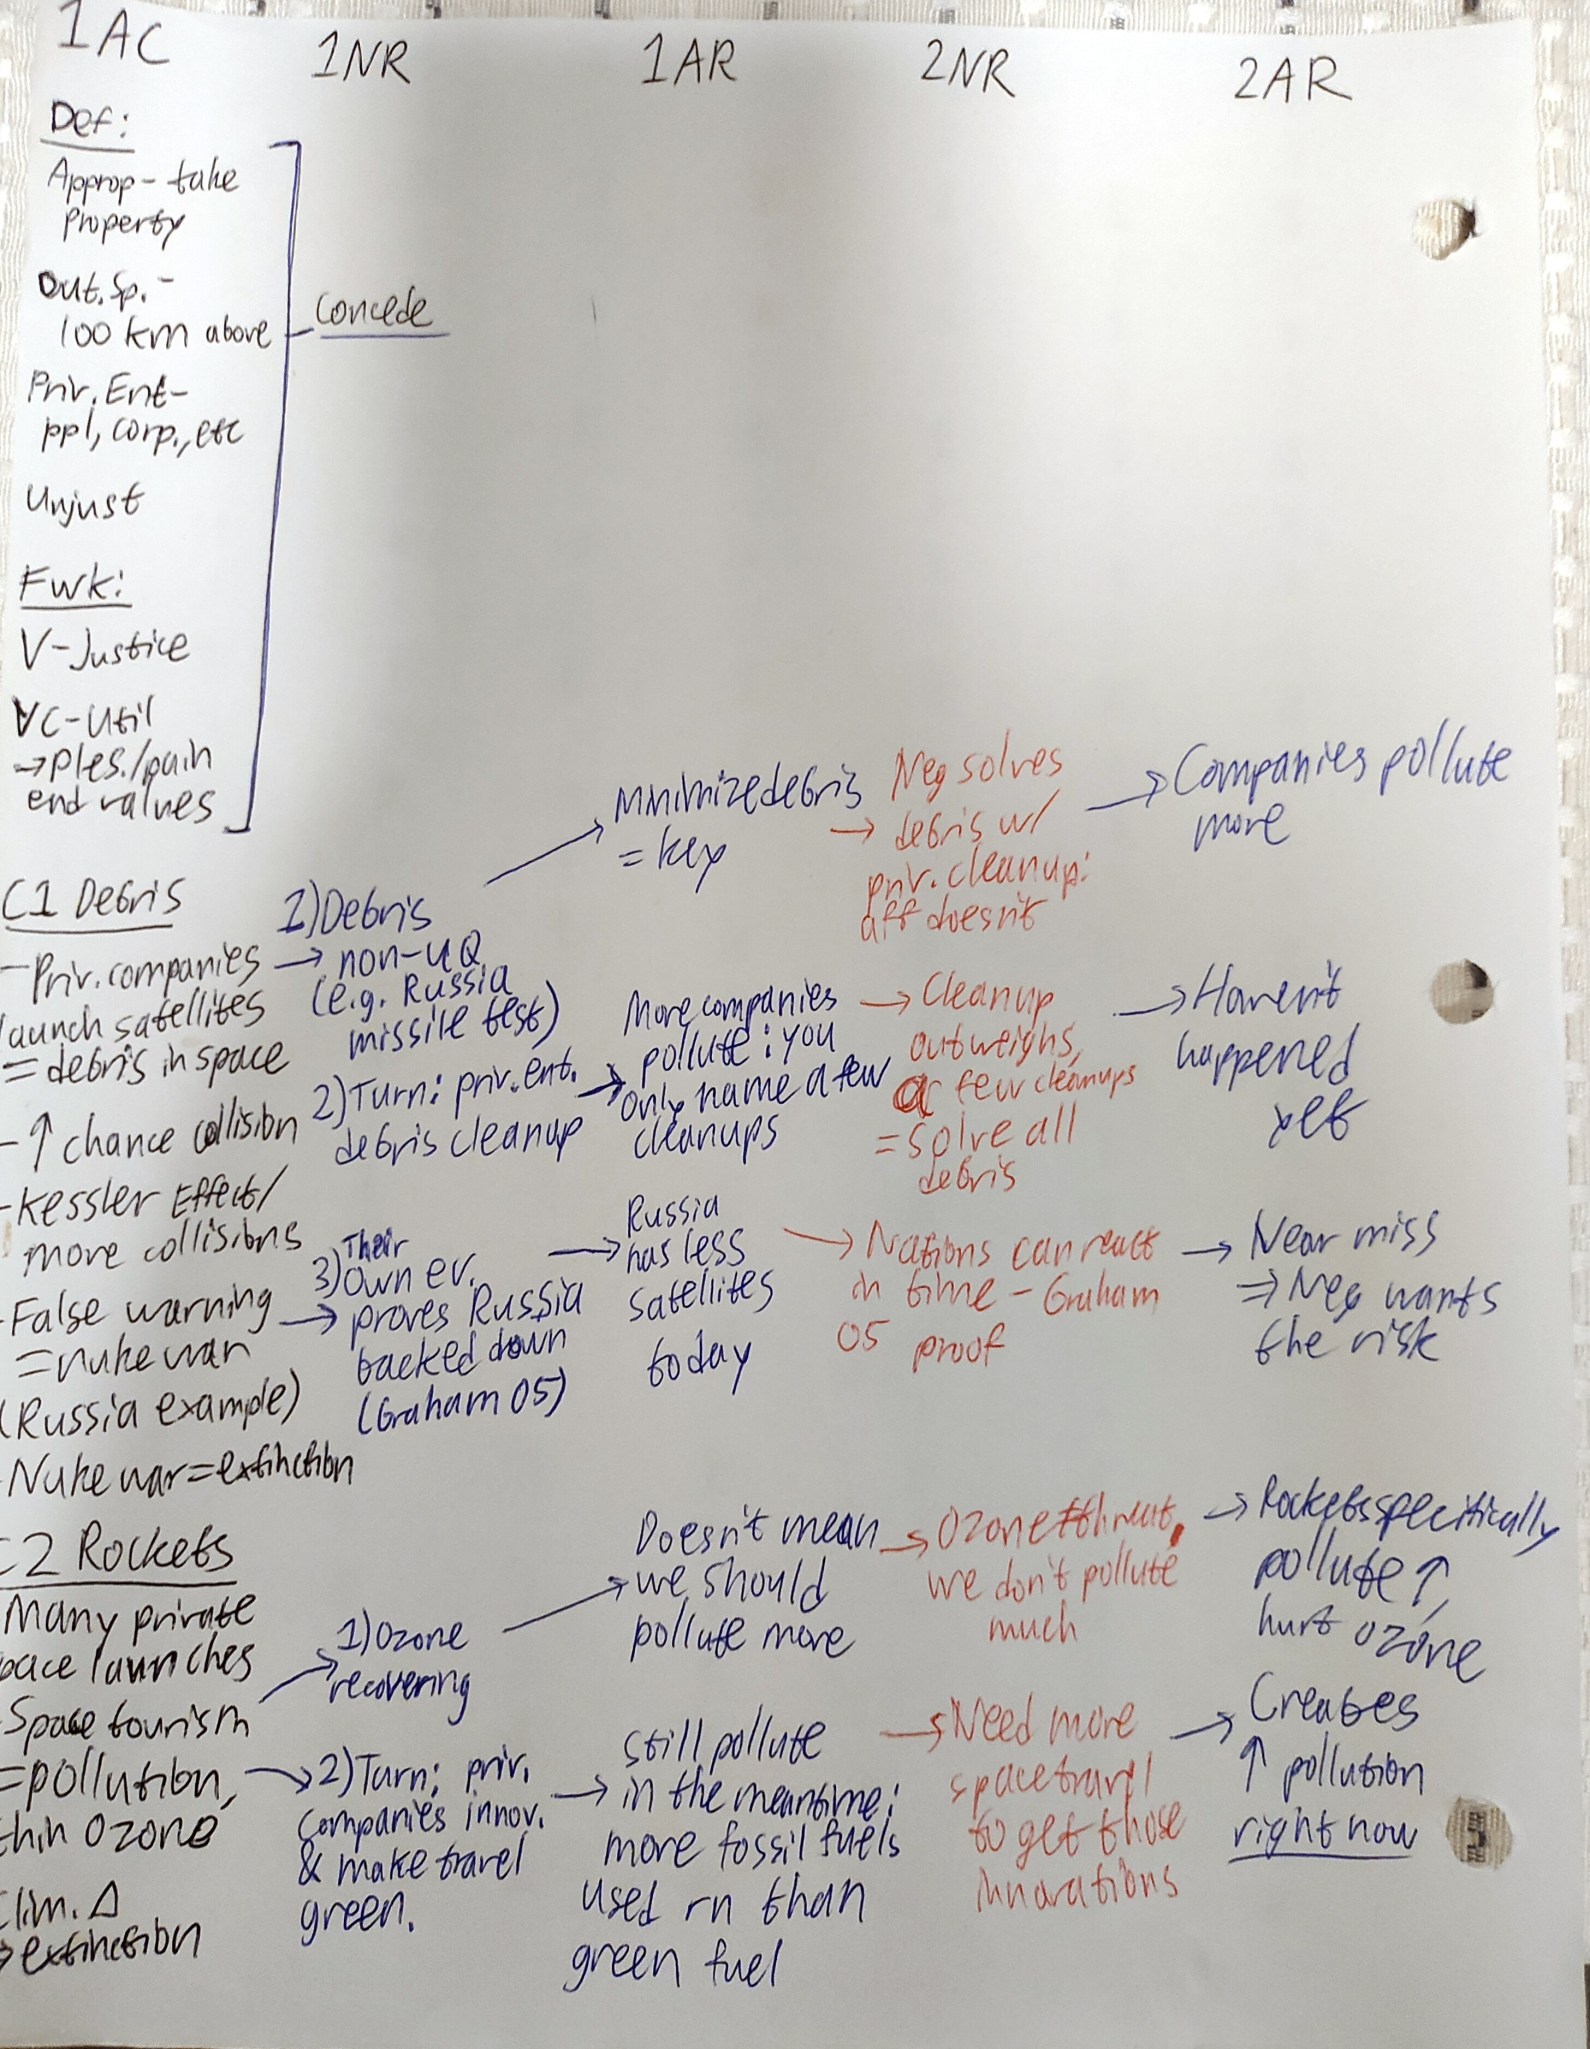 1AC
Def:
Approp- take
property
Out. Sp. -
100 km above
Priv. Ent-
ppl, corp., etc
Unjust
Fwk:
V-Justice
VC-Util
→ Ples./pain
end values
C1 Debris
- Priv. companies
launch satellites
= debris in space
- ↑ chance collision
- Kessler Effect/
more collisions
- False warning
= nuke war
(Russia example)
- Nuke war = extinction
C2 Rockets
Many private
space launches
- Space tourism
= pollution,
thin Ozone
Clim. Δ
→ extinction
1NR
Concede
1) Debris
→ non-UQ
(e.g. Russia
missile test)
2) Turn: priv. ent.
debris cleanup
3) Their
own ev.
→ proves Russia
backed down
(Graham 05)
→ 1) Ozone
recovering
→ 2) Turn: priv.
companies innov.
& make travel
green.
1AR
→ Minimize debris
= key
More companies
→ pollute: you
only name a few
cleanups
→ Russia
has less
satellites
today
Doesn't mean
→ we should
pollute more
still pollute
→ in the meantime:
more fossil fuels
used rn than
green fuel
2NR
Neg solves
→ debris w/
priv. cleanup:
aff doesn't
→ Cleanup
outweighs,
a few cleanups
= solve all
debris
→ Nations can react
in time - Graham
05 proof
→ Ozone threat,
we don't pollute
much
→ Need more
space travel
to get those
innovations
2AR
→ Companies pollute
more
→ Haven't
happened
yet
→ Near miss
⇒ Neg wants
the risk
→ Rockets specifically
pollute ↑,
hurt ozone
→ Creates
↑ pollution
right now